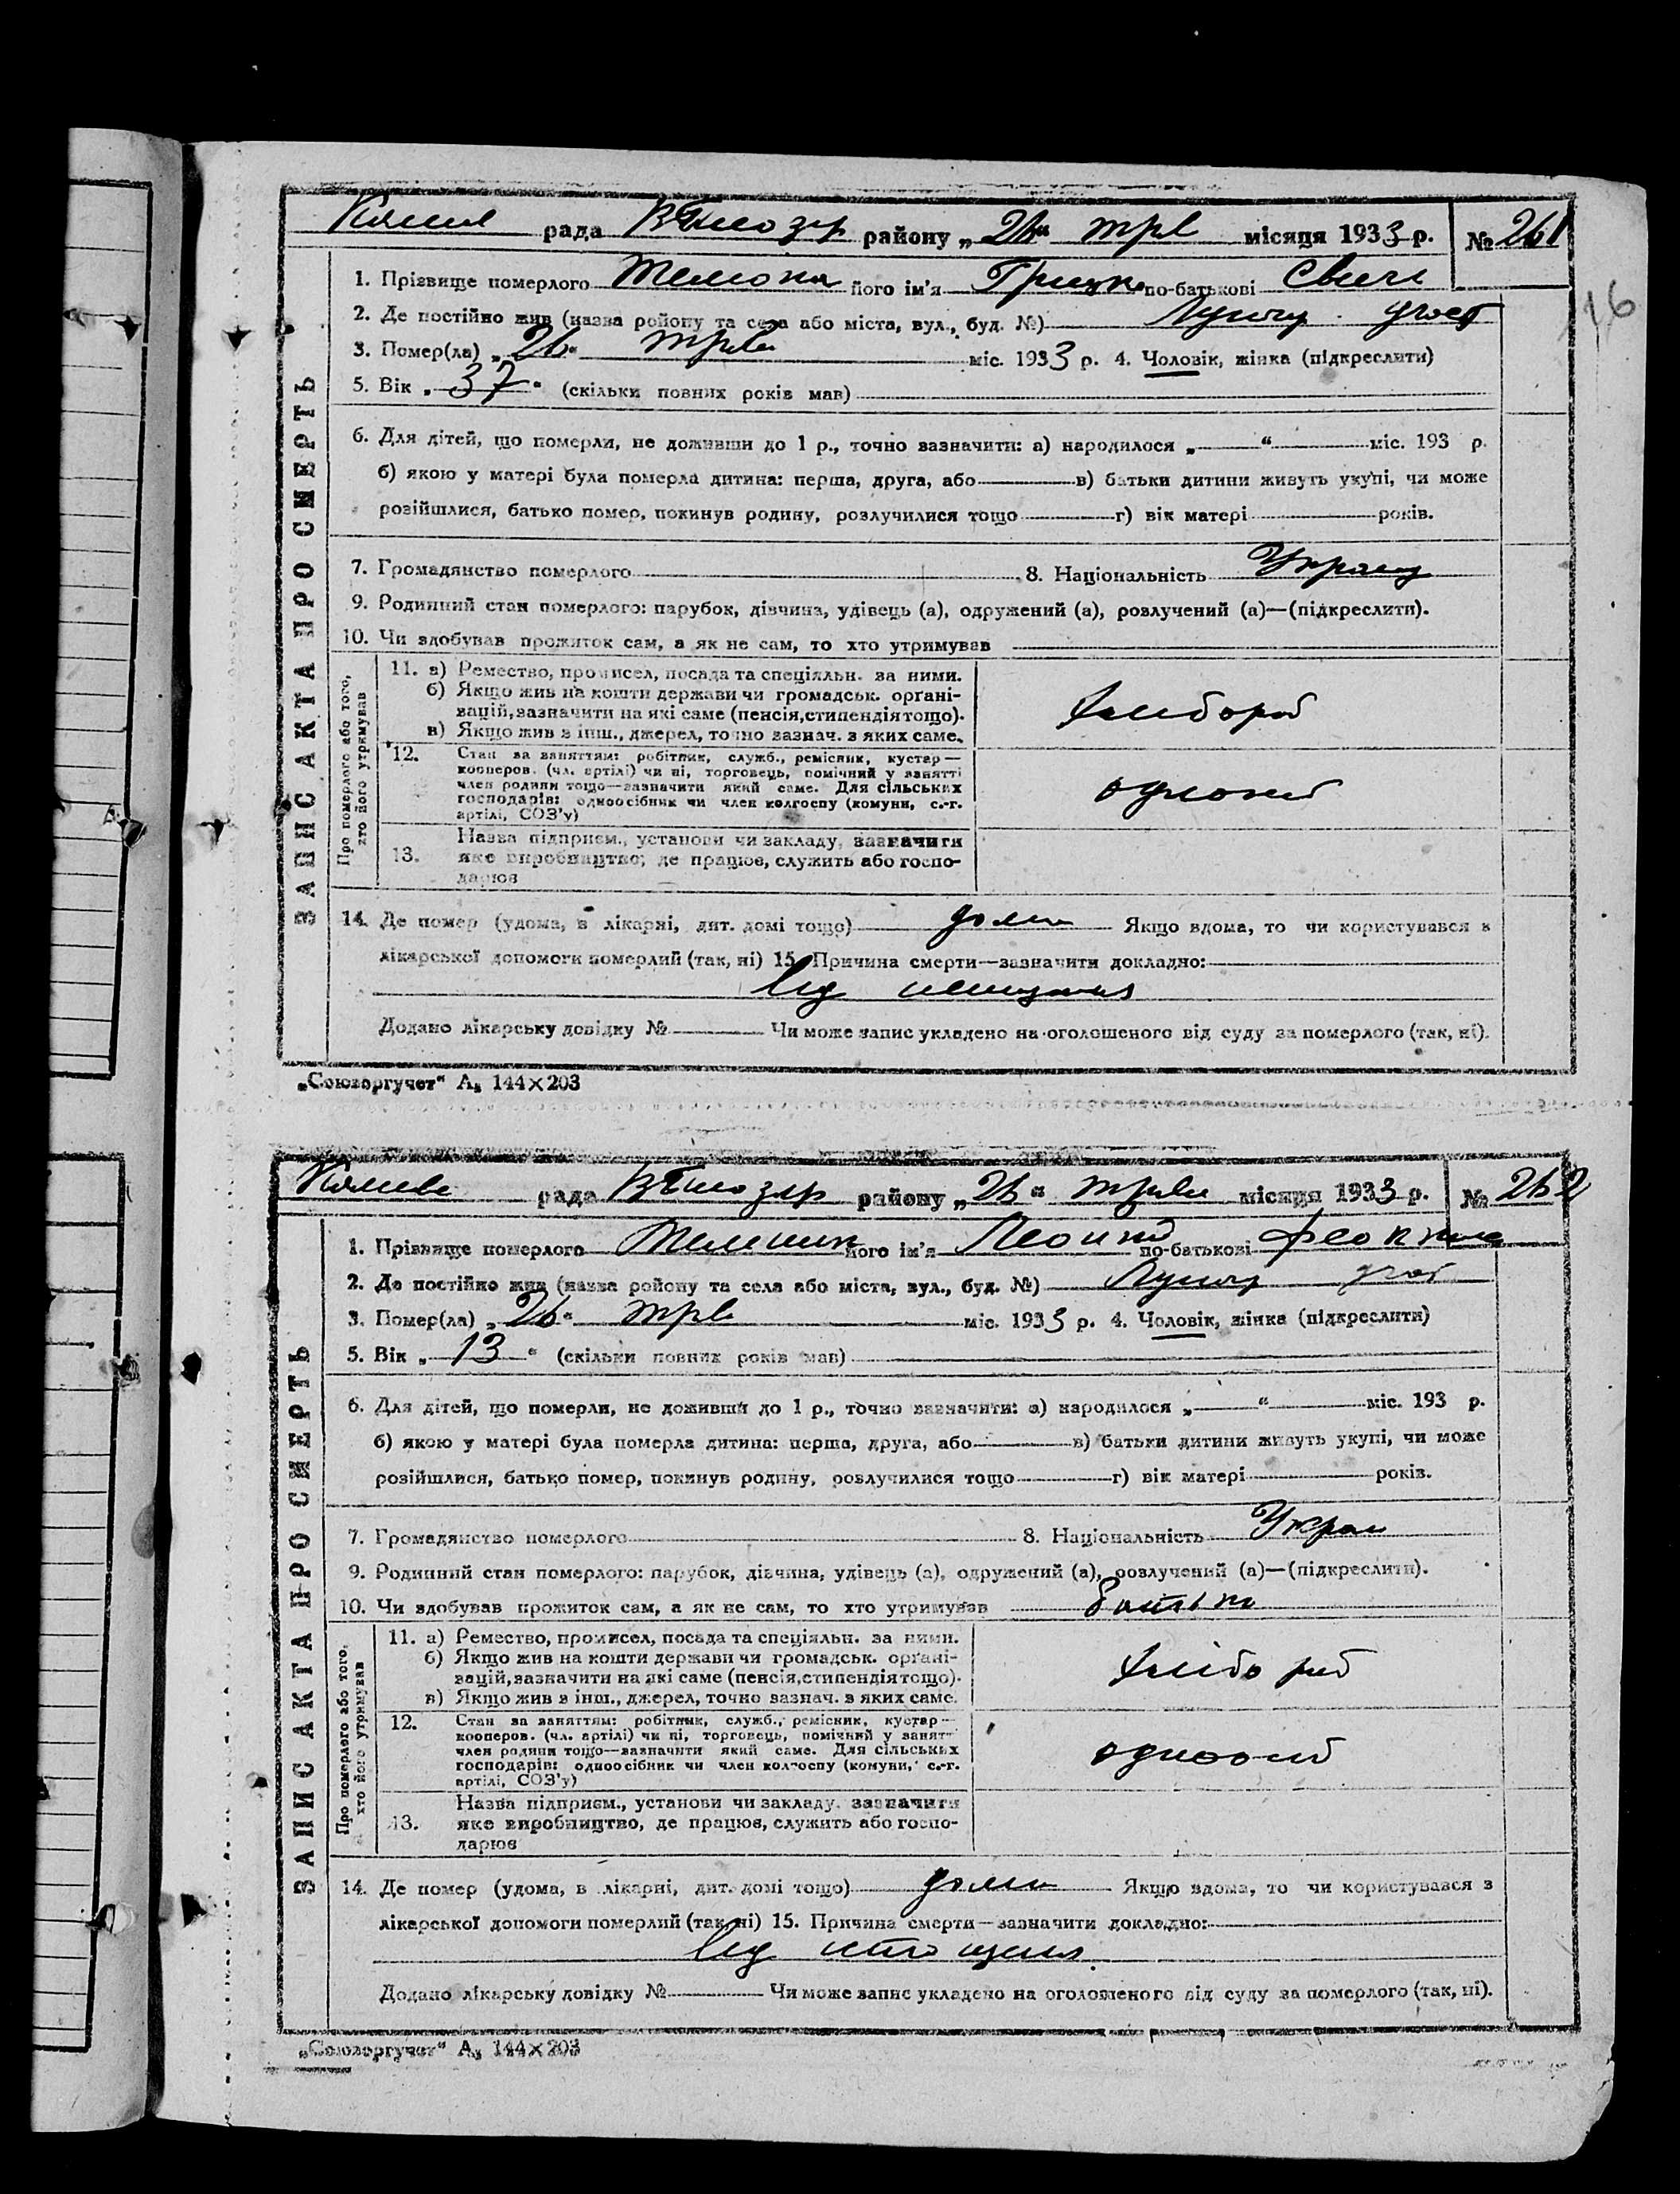 рада району „26“ трв місяця 1933 р. № 261
1. Прізвище померлого його ім'я Грицко по-батькові
2. Де постійно жив (назва ройону та села або міста, вул., буд. №)
3. Помер(ла) „26“ трв міс. 1933 р. 4. Чоловік, жінка (підкреслити)
5. Вік „37“ (скільки повних років мав)
6. Для дітей, що померли, не доживши до 1 р., точно зазначити: а) народилося „ “ міс. 193 р.
б) якою у матері була померла дитина: перша, друга, або в) батьки дитини живуть укупі, чи може
розійшлися, батько помер, покинув родину, розлучилися тощо г) вік матері років.
7. Громадянство померлого 8. Національність Украъ
9. Родинний стан померлого: парубок, дівчина, удівець (а), одружений (а), розлучений (а)—(підкреслити).
10. Чи здобував прожиток сам, а як не сам, то хто утримував
ЗАПИС АКТА ПРО СМЕРТЬ
Про померлого або того, хто його утримував
11. а) Ремество, промисел, посада та спеціяльн. за ними.
б) Якщо жив на кошти держави чи громадськ. органі-
зацій, зазначити на які саме (пенсія, стипендія тощо).
в) Якщо жив з інш., джерел, точно зазнач. з яких саме.
хлібороб
12. Стан за заняттям: робітник, служб., ремісник, кустар—
кооперов. (чл. артілі) чи ні, торговець, помічний у занятті
член родини тощо—зазначити який саме. Для сільських
господарів: одноосібник чи член колгоспу (комуни, с.-г.
артілі, СОЗ'у)
13. Назва підприєм., установи чи закладу, зазначити
яке виробництво, де працює, служить або госпо-
дарює
14. Де помер (удома, в лікарні, дит. домі тощо) дома Якщо вдома, то чи користувався з
лікарської допомоги померлий (так, ні) 15. Причина смерти—зазначити докладно:
від
Додано лікарську довідку № Чи може запис укладено на оголошеного від суду за померлого (так, ні).
„Союзоргучет“ А₅ 144×203
16
рада району „26“ трвм місяця 1933 р. № 262
1. Прізвище померлого його ім'я Леонид по-батькові
2. Де постійно жив (назва ройону та села або міста, вул., буд. №)
3. Помер(ла) „26“ трв міс. 1933 р. 4. Чоловік, жінка (підкреслити)
5. Вік „13“ (скільки повних років мав)
6. Для дітей, що померли, не доживши до 1 р., точно зазначити: а) народилося „ “ міс. 193 р.
б) якою у матері була померла дитина: перша, друга, або в) батьки дитини живуть укупі, чи може
розійшлися, батько помер, покинув родину, розлучилися тощо г) вік матері років.
7. Громадянство померлого 8. Національність Украи
9. Родинний стан померлого: парубок, дівчина, удівець (а), одружений (а), розлучений (а)—(підкреслити).
10. Чи здобував прожиток сам, а як не сам, то хто утримував
ЗАПИС АКТА ПРО СМЕРТЬ
Про померлого або того, хто його утримував
11. а) Ремество, промисел, посада та спеціяльн. за ними.
б) Якщо жив на кошти держави чи громадськ. органі-
зацій, зазначити на які саме (пенсія, стипендія тощо).
в) Якщо жив з інш., джерел, точно зазнач. з яких саме.
хлібороб
12. Стан за заняттям: робітник, служб., ремісник, кустар—
кооперов. (чл. артілі) чи ні, торговець, помічний у занятт
член родини тощо—зазначити який саме. Для сільських
господарів: одноосібник чи член колгоспу (комуни, с.-г.
артілі, СОЗ'у)
13. Назва підприєм., установи чи закладу, зазначити
яке виробництво, де працює, служить або госпо-
дарює
14. Де помер (удома, в лікарні, дит. домі тощо) дома Якщо вдома, то чи користувався з
лікарської допомоги померлий (так, ні) 15. Причина смерти—зазначити докладно:
від истощеня
Додано лікарську довідку № Чи може запис укладено на оголошеного від суду за померлого (так, ні).
„Союзоргучет“ А₅ 144×203